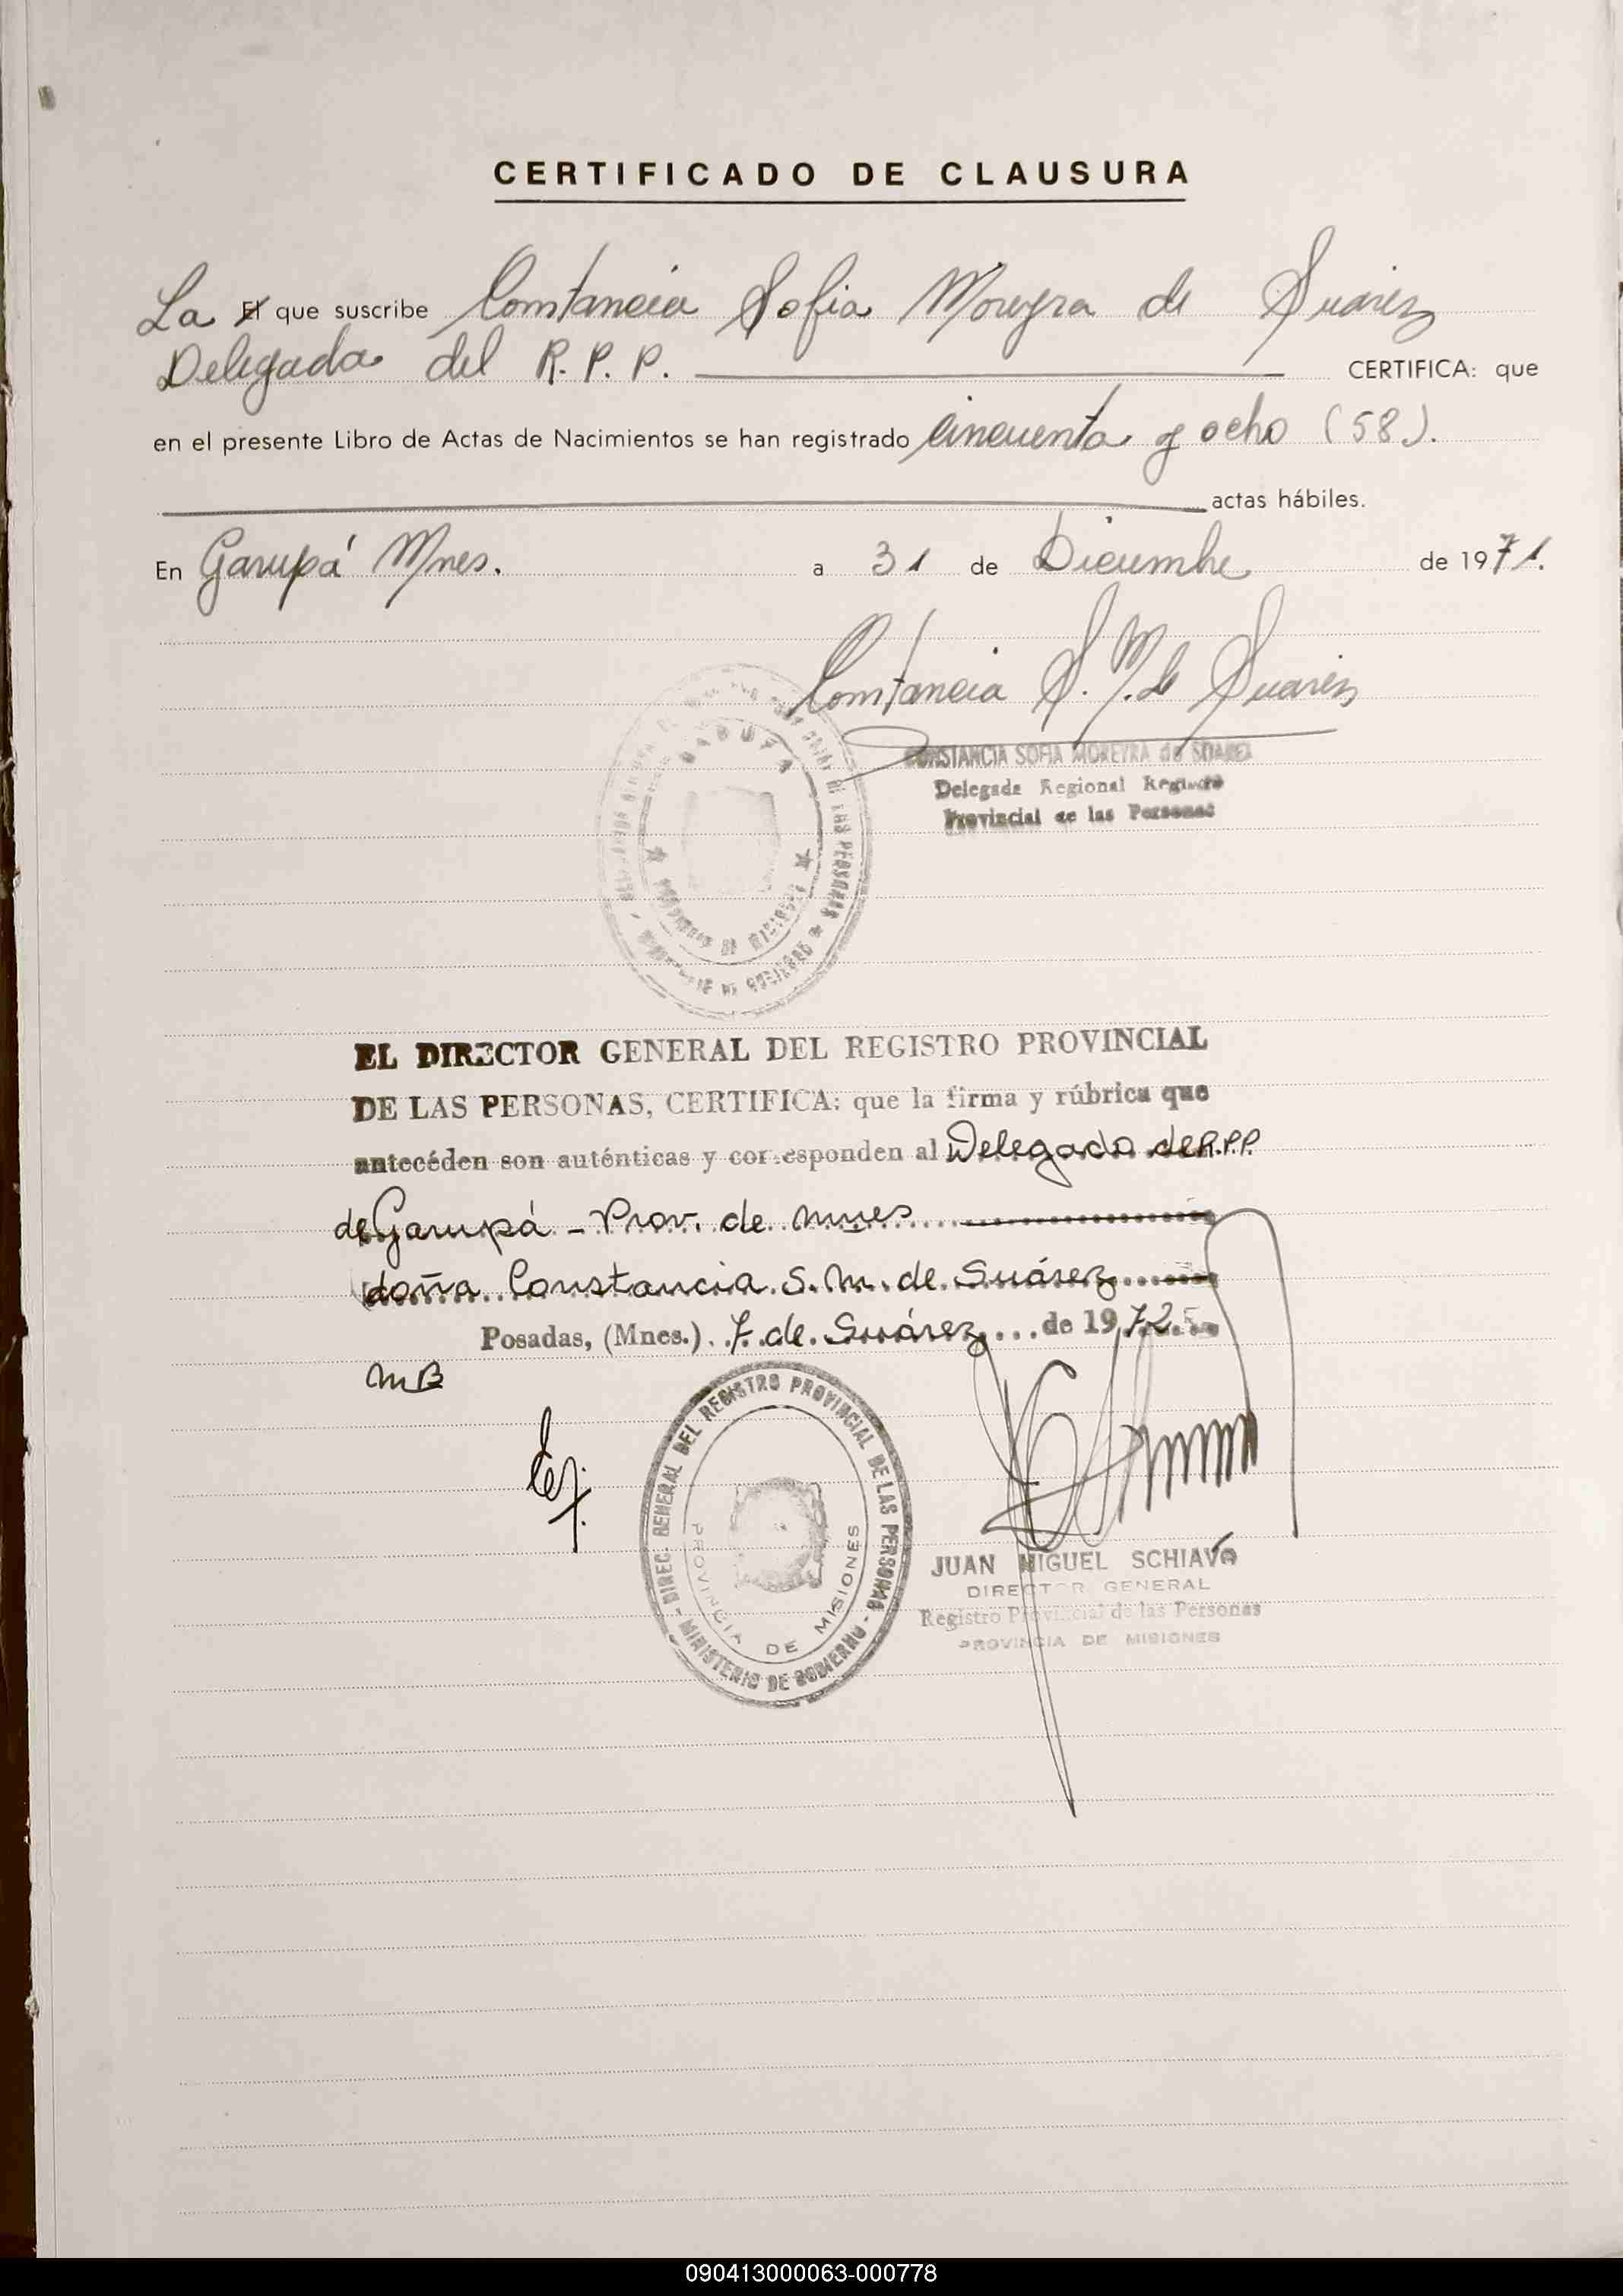 CERTIFICADO DE CLAUSURA
La El que suscribe Constancia Sofia Moreyra de Suarez
Delegada del R. P. P. CERTIFICA: que
en el presente Libro de Actas de Nacimientos se han registrado Cincuenta y ocho (58).
actas hábiles.
En Garupá Mnes. a 31 de Diciembre de 1971.
Constancia S. M. de Suarez
CONSTANCIA SOFIA MOREYRA de SUAREZ
Delegada Regional Registro
Provincial de las Personas
GARUPA
EL DIRECTOR GENERAL DEL REGISTRO PROVINCIAL
DE LAS PERSONAS, CERTIFICA: que la firma y rúbrica que
antecéden son auténticas y corresponden al Delegado del R.P.P.
de Garupá - Prov. de Mnes
doña Constancia S. M. de Suárez
Posadas, (Mnes.) 7 de de 1972
MB
DIREC. GENERAL DEL REGISTRO PROVINCIAL DE LAS PERSONAS - MINISTERIO DE GOBIERNO -
PROVINCIA DE MISIONES
JUAN MIGUEL SCHIAVO
DIRECTOR GENERAL
Registro Provincial de las Personas
PROVINCIA DE MISIONES
090413000063-000778